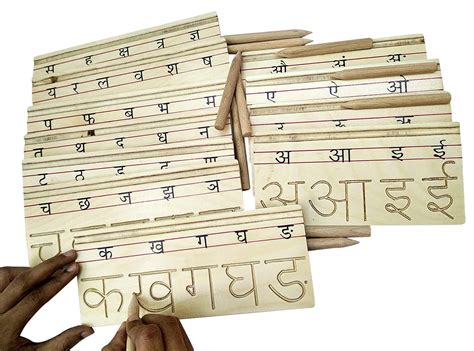 स ह क्ष त्र ज्ञ
य र ल व श ष
प फ ब भ म
त थ द ध न
ट ठ ड ढ ण
च छ ज झ ञ
च
क ख ग घ ङ
क ख ग घ ङ
औ अं अः
ए ऐ ओ
अ आ इ ई
अ आ इ ई